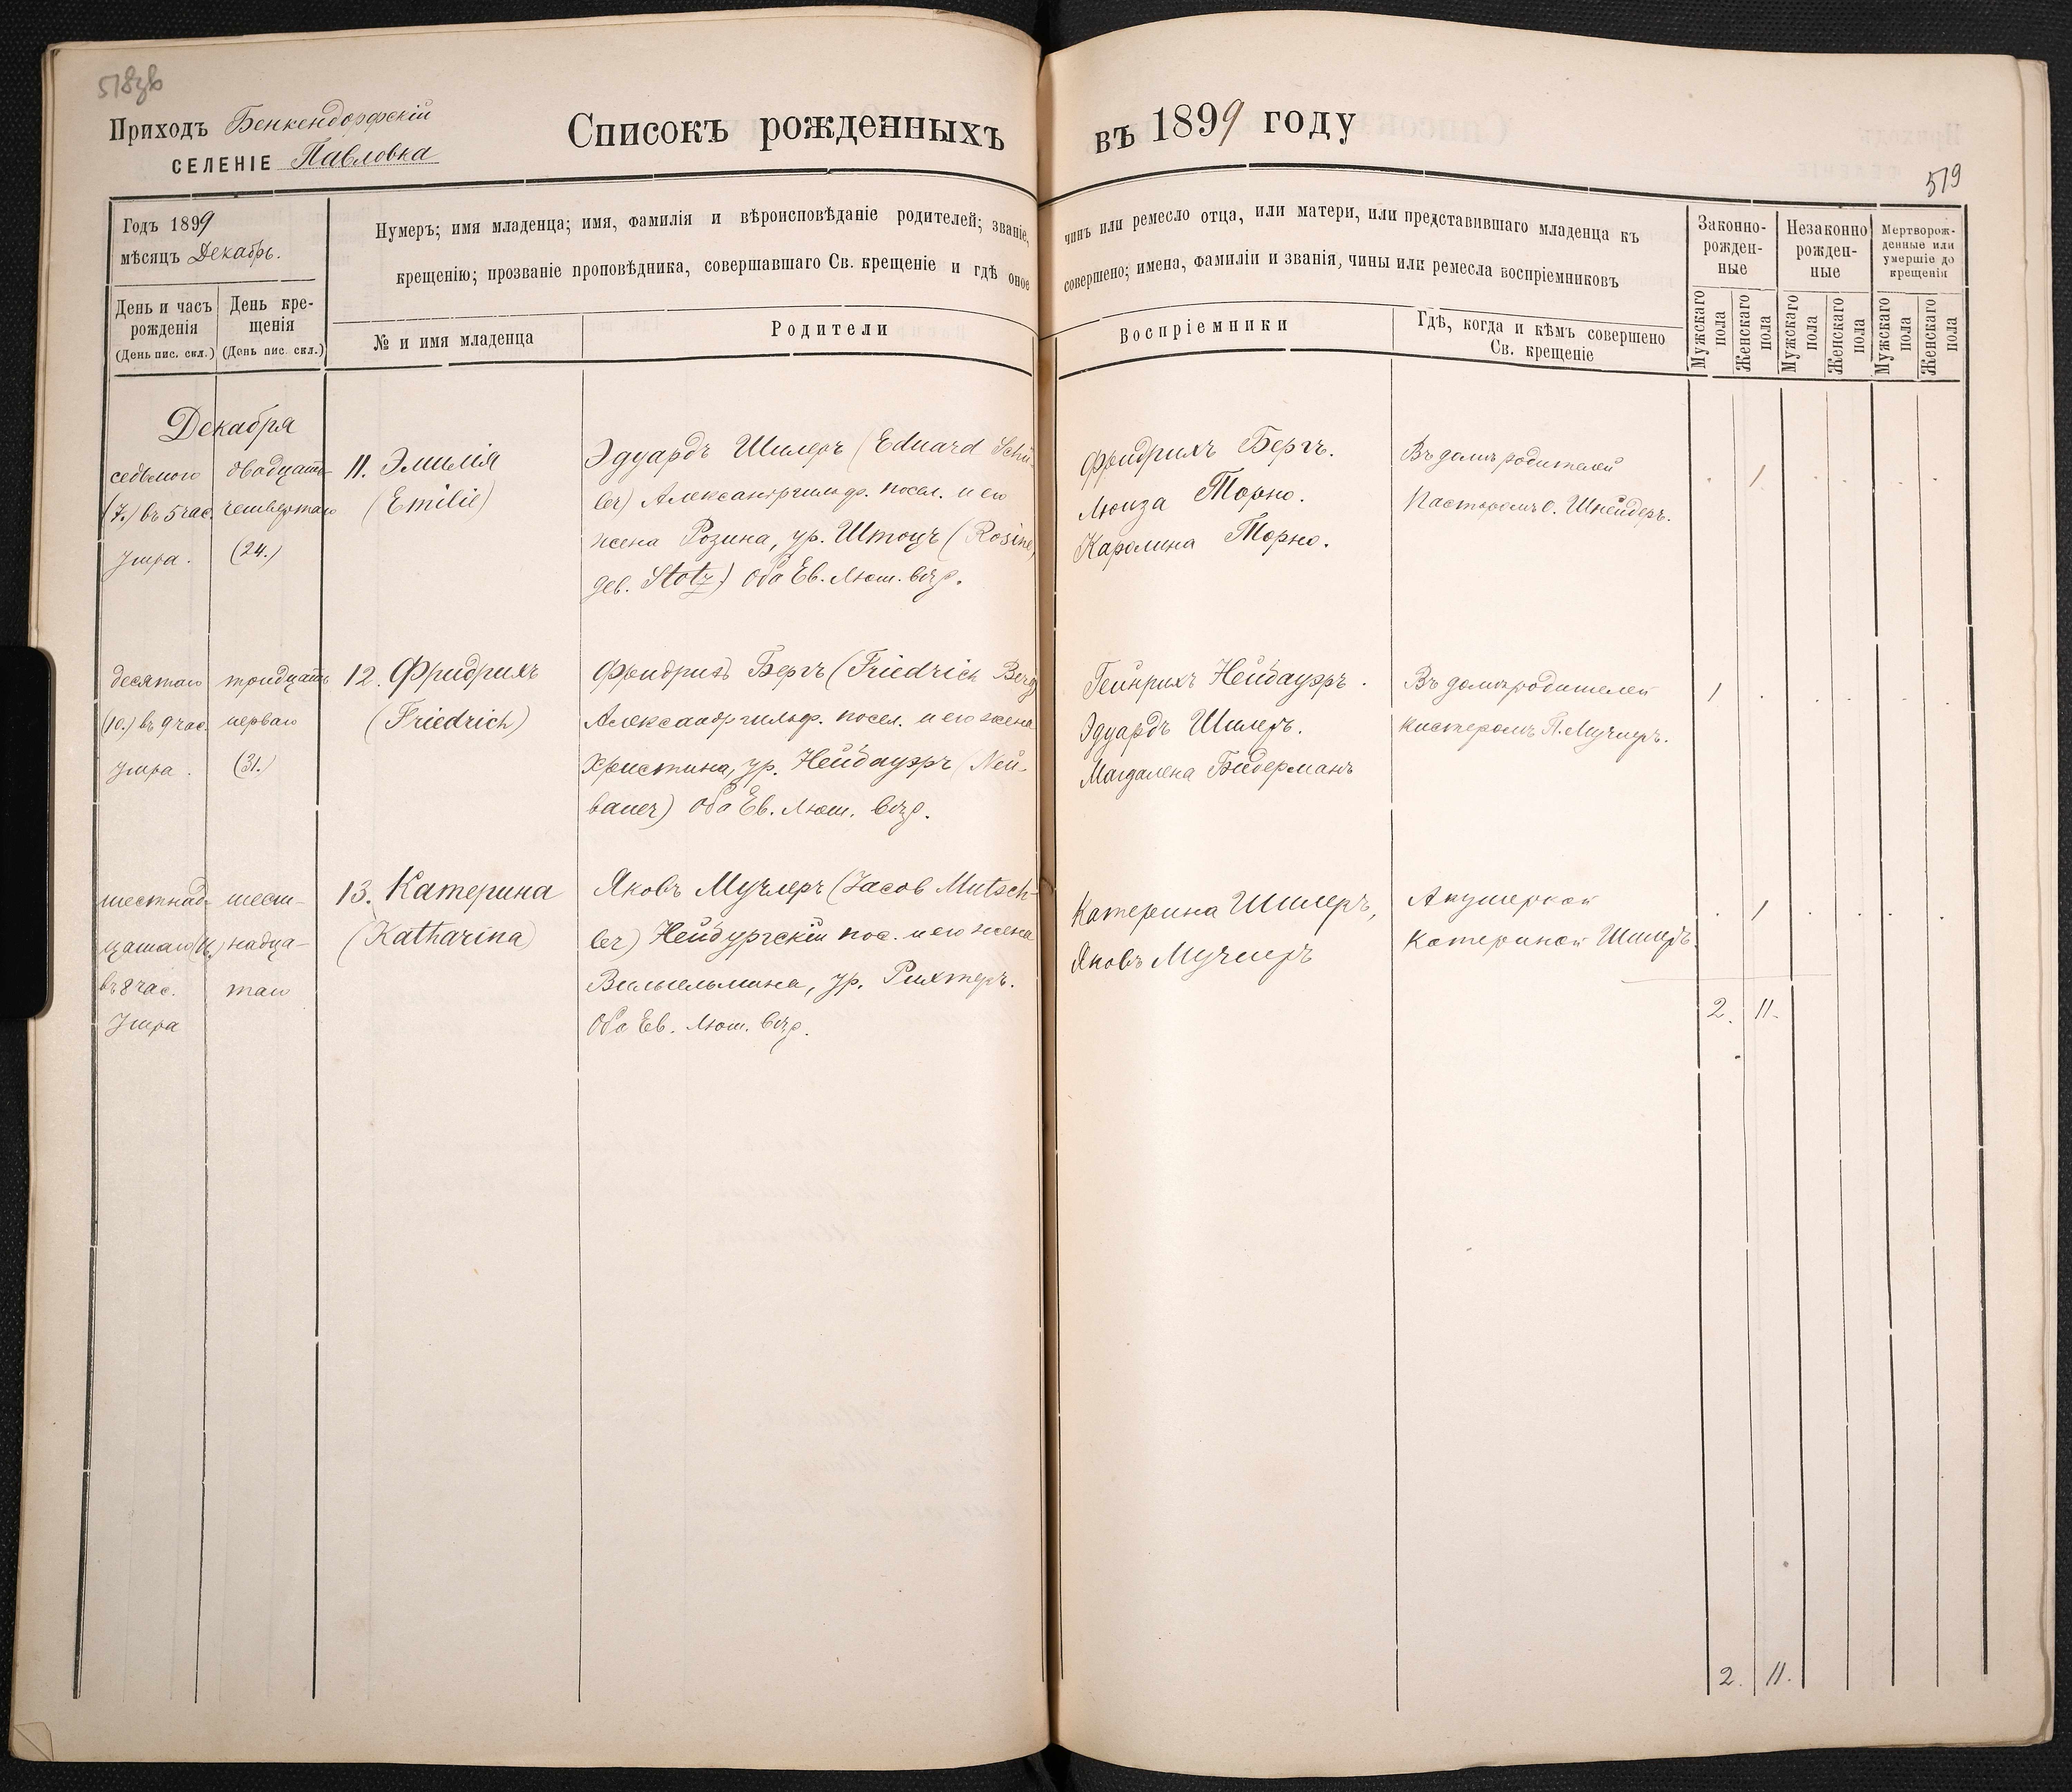 518об
Приходъ Бенкендорфскій
СЕЛЕНІЕ Павловка
Списокъ рожденныхъ въ 1899 году
519
Годъ 1899
мѣсяцъ Декабрь.
День и часъ рожденія
(День пис. скл.)
День кре-
щенія
(День пис. скл.)
Нумеръ; имя младенца; имя, фамилія и вѣроисповѣданіе родителей; званіе, чинъ или ремесло отца, или матери, или представившаго младенца къ
крещенію; прозваніе проповѣдника, совершавшаго Св. крещеніе и гдѣ оное совершено; имена, фамиліи и званія, чины или ремесла воспріемниковъ
№ и имя младенца
Родители
Воспріемники
Гдѣ, когда и кѣмъ совершено
Св. крещеніе
Законно-
рожден-
ные
Незаконно
рожден-
ные
Мертворож-
денные или
умершіе до
крещенія
Мужскаго пола
Женскаго пола
Мужскаго пола
Женскаго пола
Мужскаго пола
Женскаго пола
Декабря
седьмого
(7.) въ 5 час.
утра.
двадцать
четвертаго
(24.)
11. Эмилія
(Emilie)
Эдуардъ Шилеръ (Eduard Schü-
ler) Александргильф. посел. и его
жена Розина, ур. Штоцъ (Rosine,
geb. Stotz) Оба Ев. Лют. вѣр.
Фридрихъ Бергъ.
Люиза Торно.
Каролина Торно.
Въ домѣ родителей
Пасторомъ О. Шнейдеръ.
1
десятаго
(10.) въ 9 час.
утра.
тридцать
перваго
(31.)
12. Фридрихъ
(Friedrich)
Фридрихъ Бергъ (Friedrich Berg)
Александргильф. посел. и его жена
Христина, ур. Нейбауэръ (Neu-
bauer) Оба Ев. Лют. вѣр.
Гейнрихъ Нейбауэръ.
Эдуардъ Шилеръ.
Магдалена Бидерманъ
Въ домѣ родителей
Кистеромъ П. Мучлеръ.
1
шестнад-
цатаго (16.)
въ 8 час.
утра
шест-
надца-
таго
13. Катерина
(Katharina)
Яковъ Мучлеръ (Jacob Mutsch-
ler) Нейбургскій пос. и его жена
Вильгельмина, ур. Рихтеръ.
Оба Ев. Лют. вѣр.
Катерина Шилеръ,
Яковъ Мучлеръ
Акушеркой
Катериной Шилеръ.
1
2. 11.
2. 11.